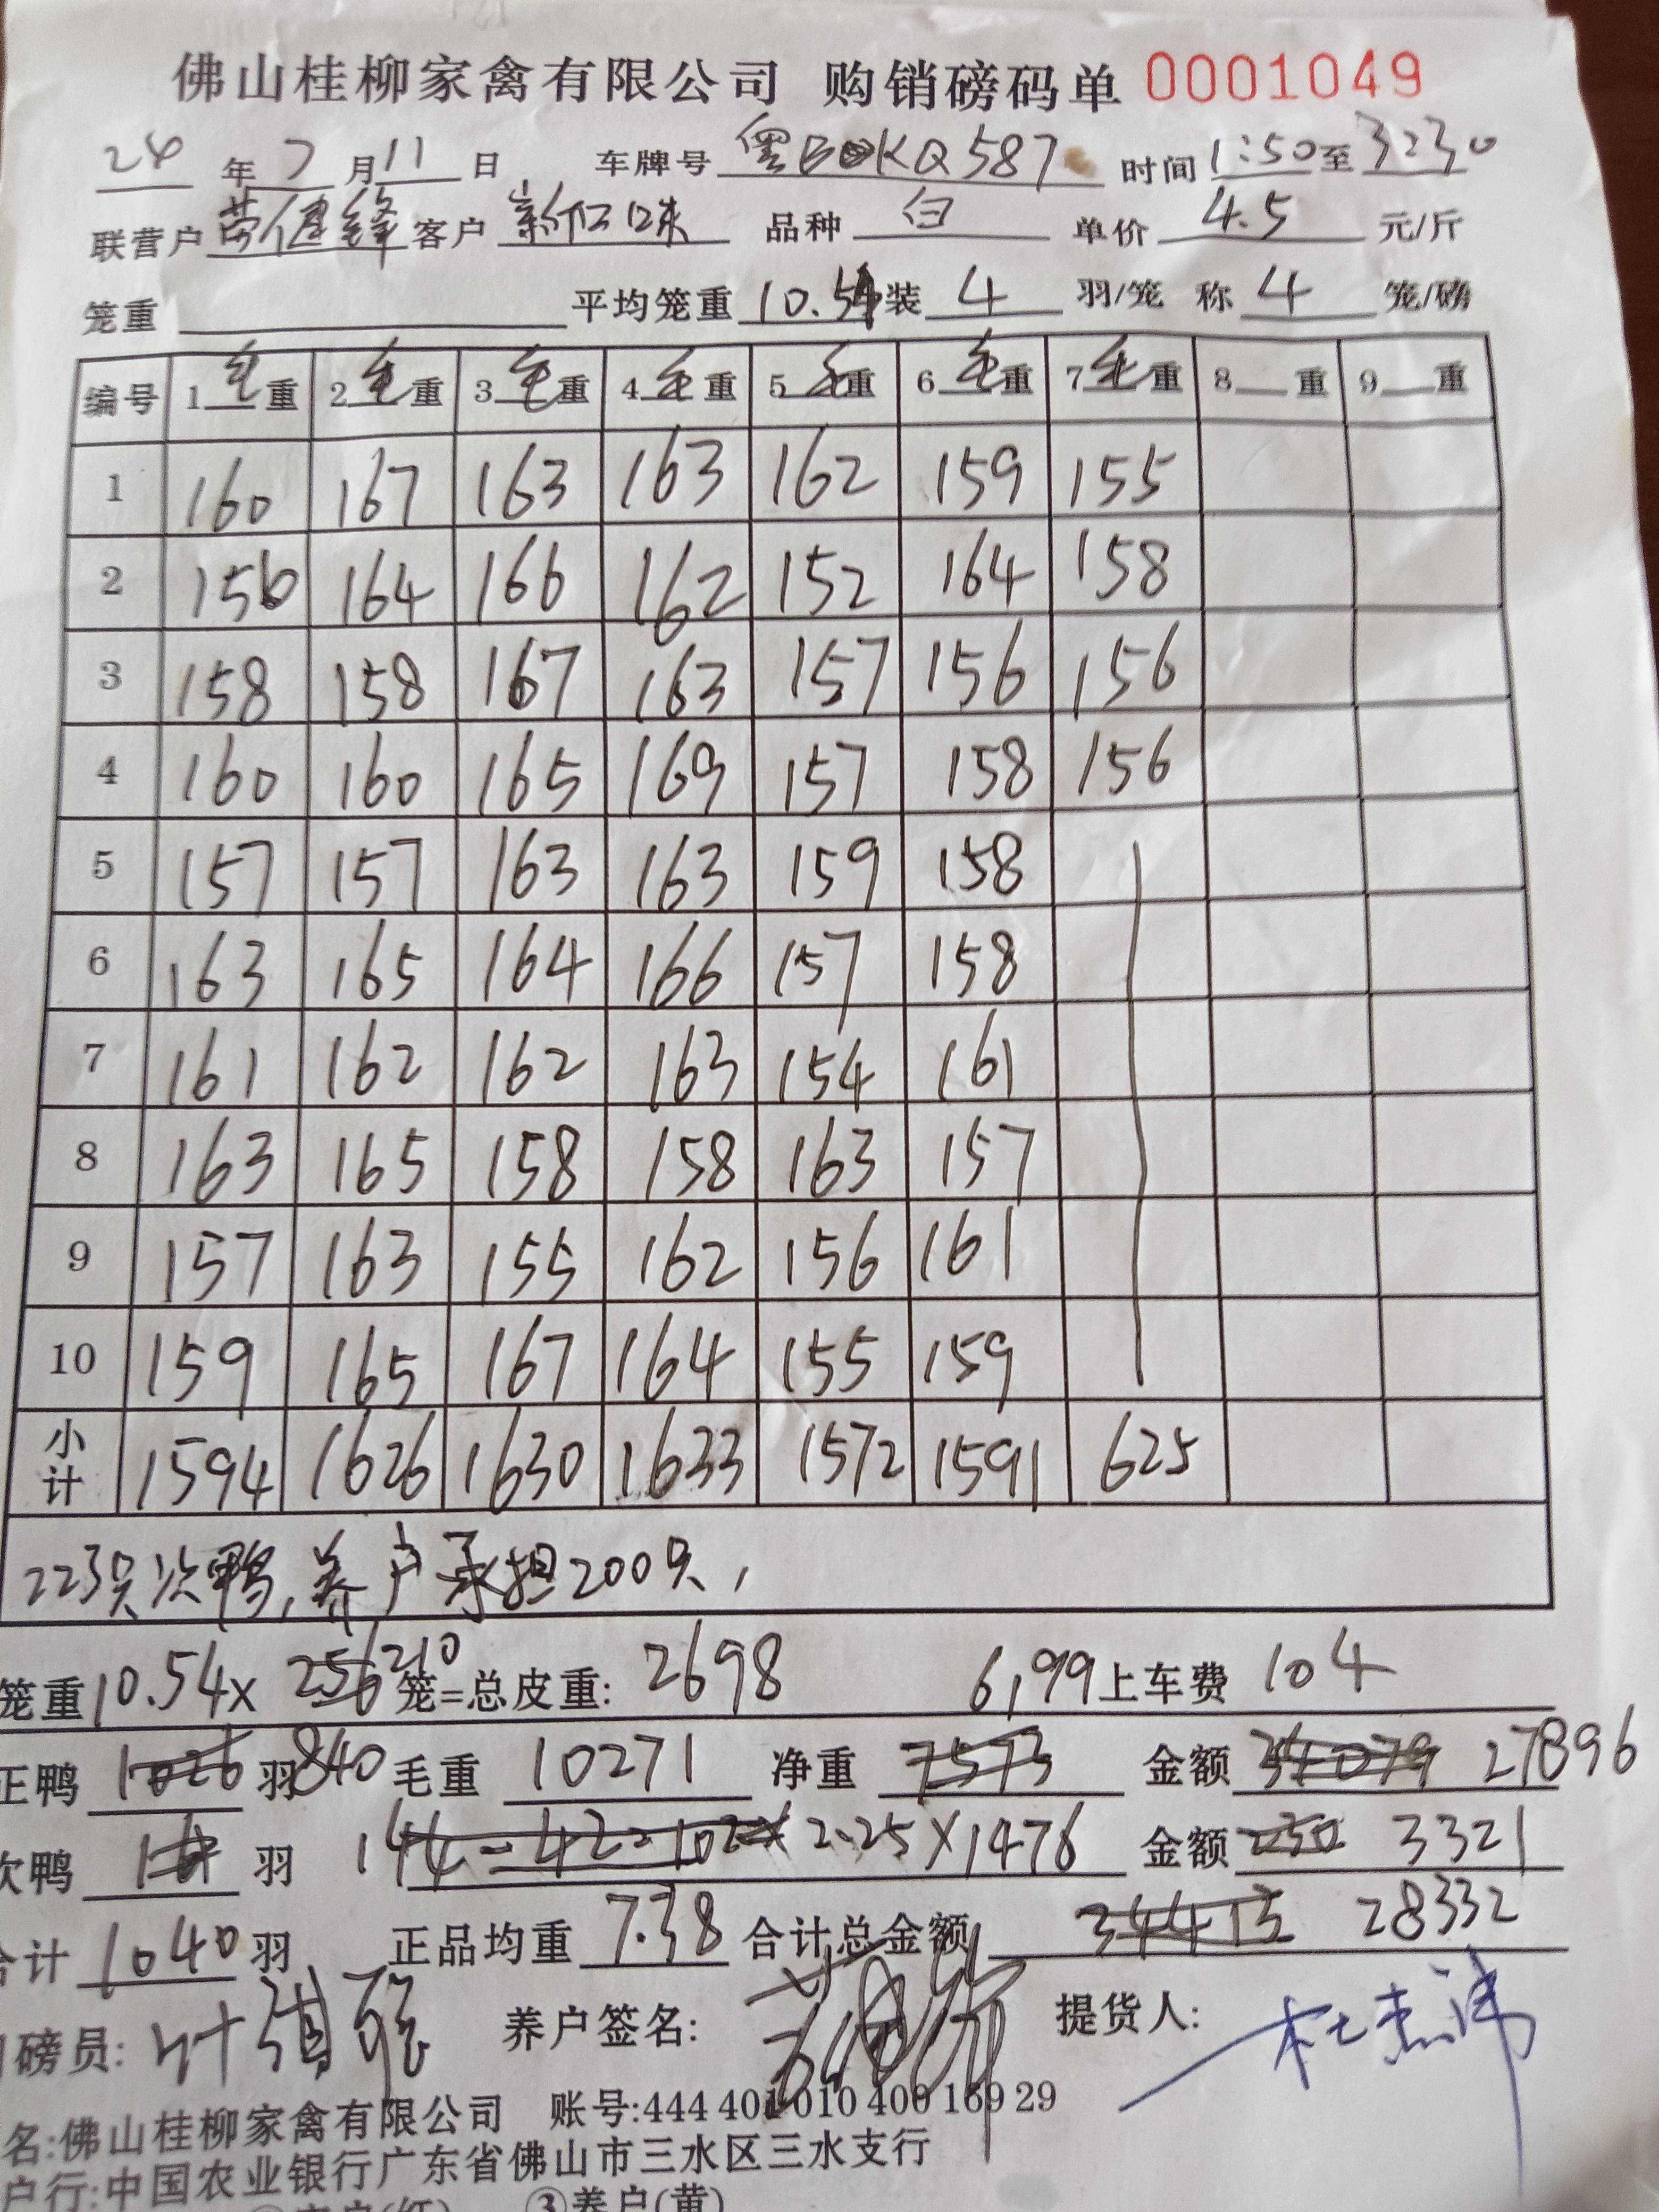 佛山桂柳家禽有限公司 购销磅码单 0001049
24年7月11日 车牌号 粤B KQ587 时间1:50至3230
联营户 劳健锋 客户 新伍味 品种 白 单价 4.5 元/斤
笼重 平均笼重 10.54 装 4 羽/笼 称 4 笼/磅
编号 1毛重 2毛重 3毛重 4毛重 5毛重 6毛重 7毛重 8 重 9 重
1 160 167 163 163 162 159 155
2 156 164 166 162 152 164 158
3 158 158 167 163 157 156 156
4 160 160 165 169 157 158 156
5 157 157 163 163 159 158
6 163 165 164 166 157 158
7 161 162 162 163 154 161
8 163 165 158 158 163 157
9 157 163 155 162 156 161
10 159 165 167 164 155 159
小计 1594 1626 1630 1633 1572 1591 625
223只次鸭,养户承担200只,
笼重10.54×256 210笼=总皮重: 2698 6,99上车费 104
正鸭 1026 羽 840 毛重 10271 净重 7573 金额 34079 27896
次鸭 14 羽 144-42=102× 2.25×1476 金额 230 3321
合计 1040 羽 正品均重 7.38 合计总金额 34413 28332
司磅员: 养户签名: 提货人:
名:佛山桂柳家禽有限公司 账号:444 401 010 400 169 29
户行:中国农业银行广东省佛山市三水区三水支行
③养户(黄)